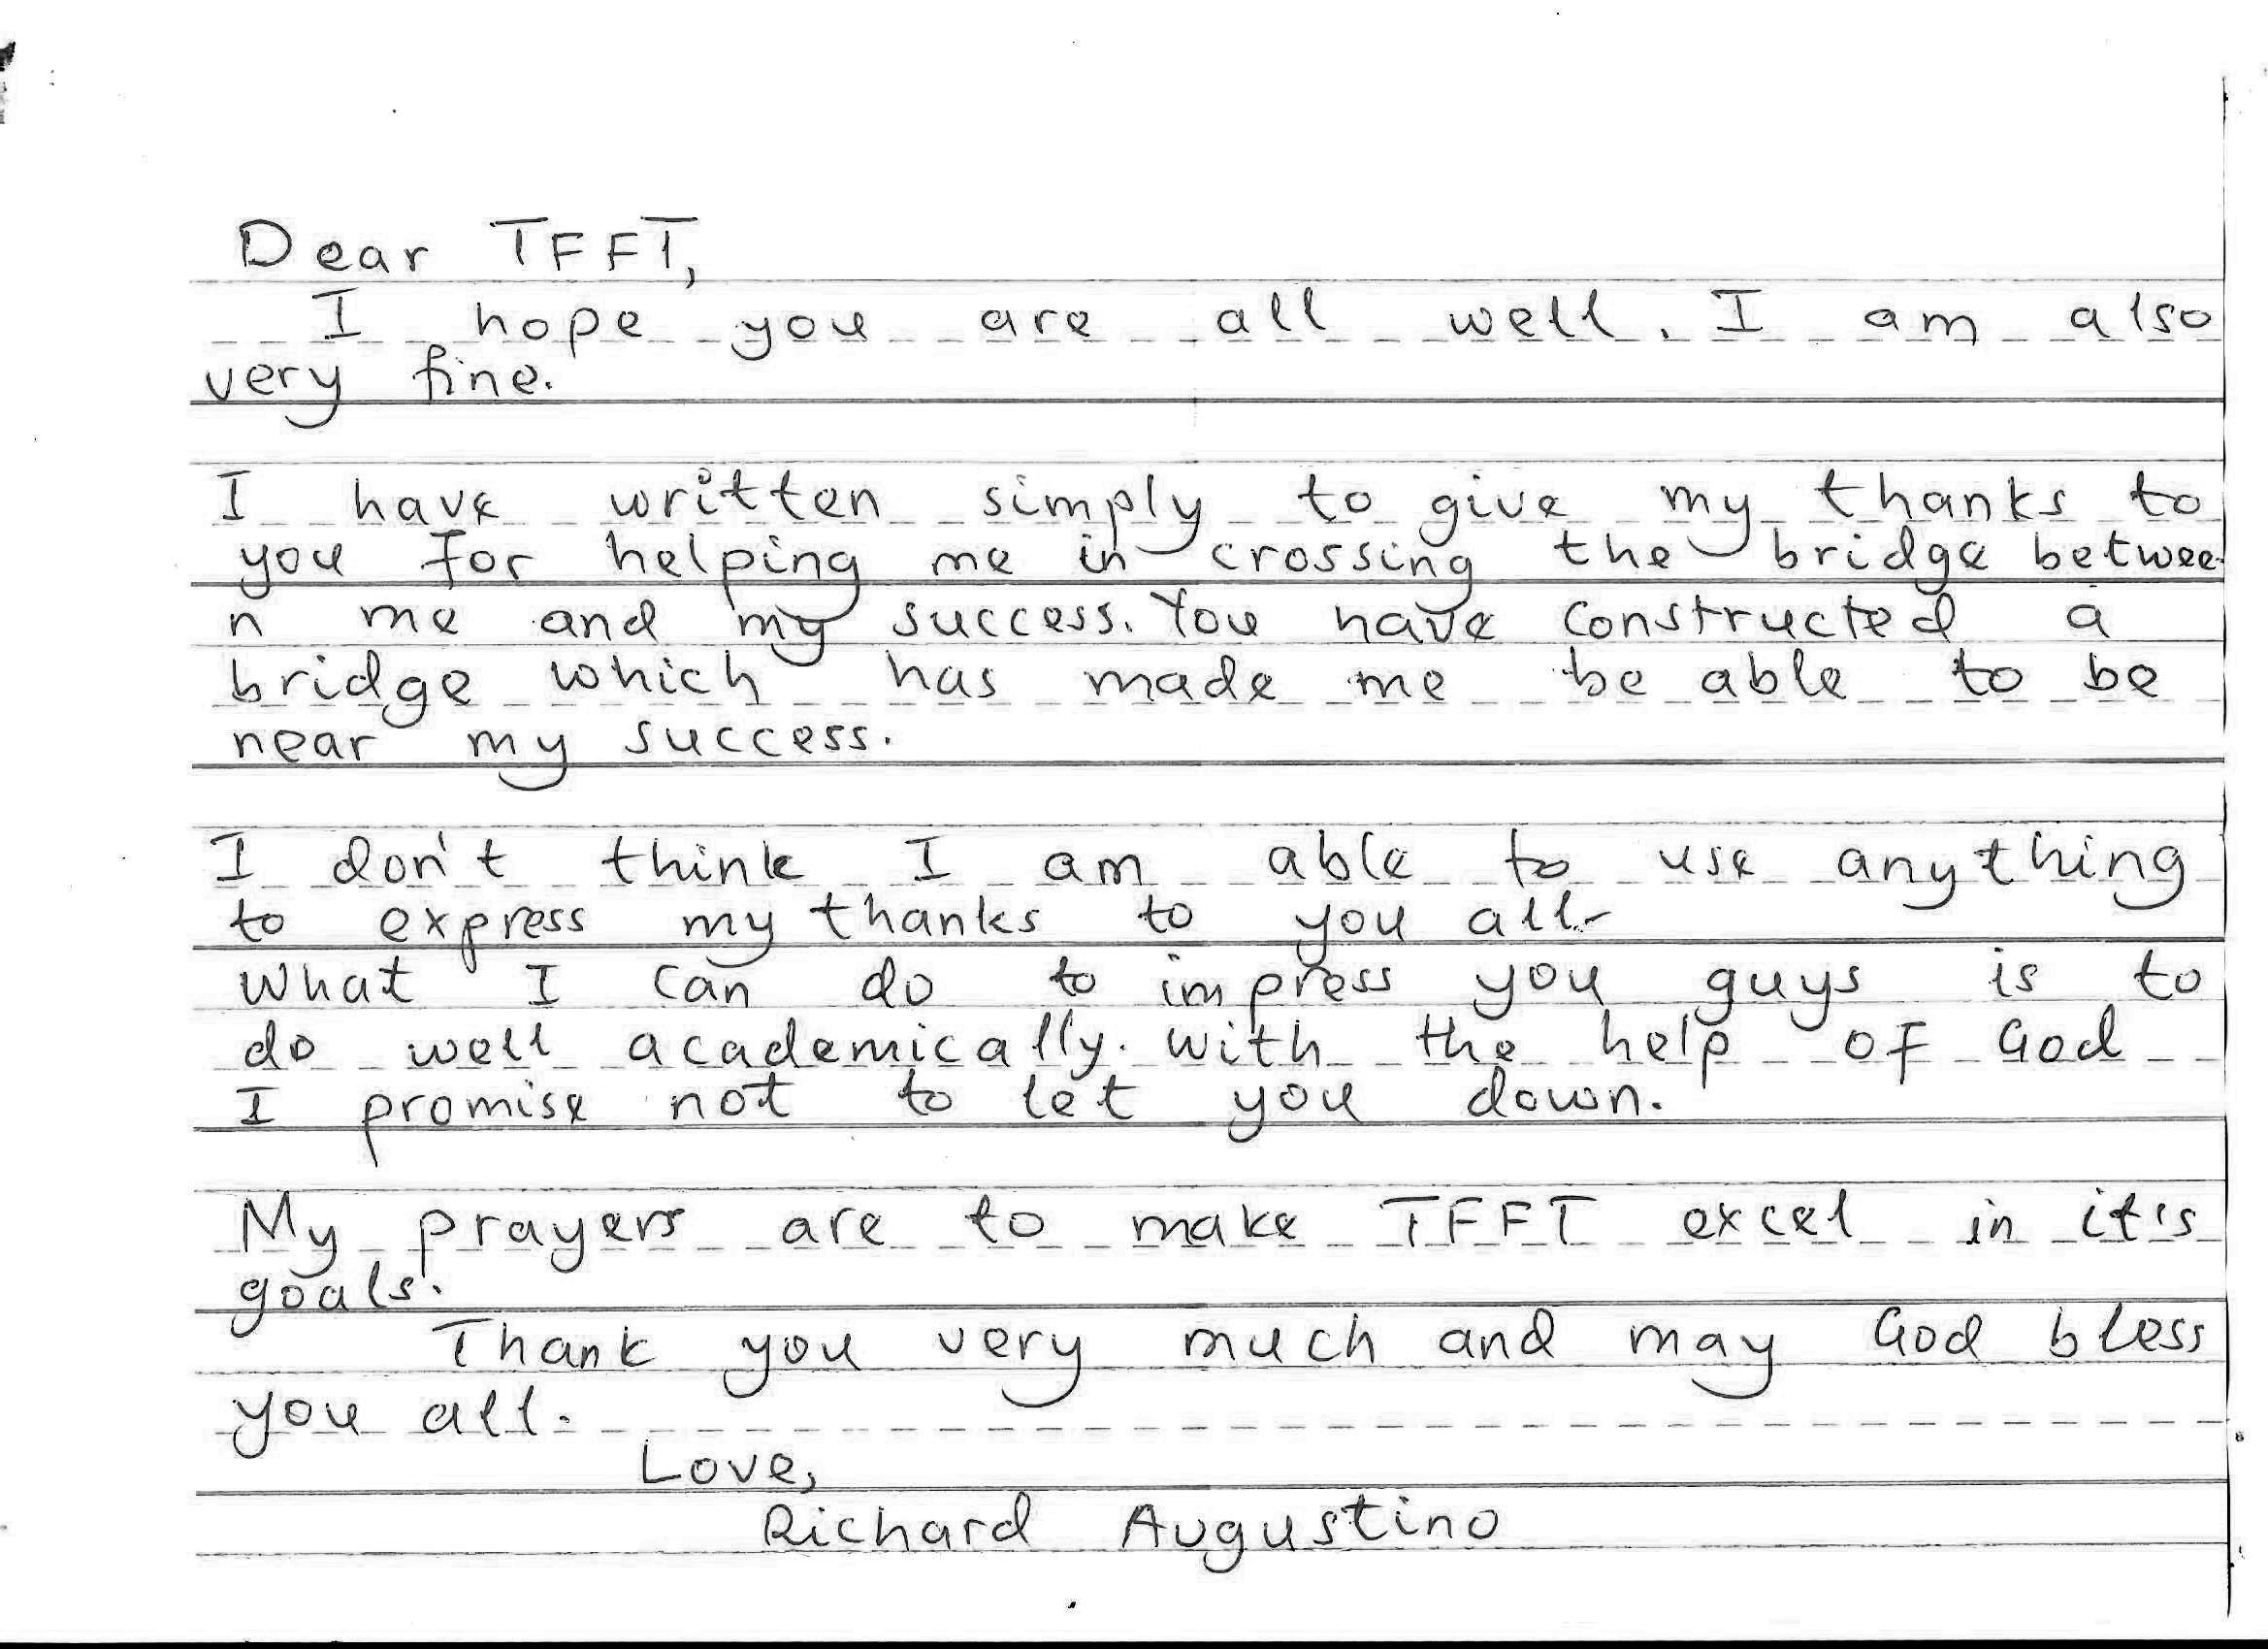 Dear TFFT,
I hope you are all well. I am also
very fine.
I have written simply to give my thanks to
you for helping me in crossing the bridge betwee-
n me and my success. You have constructed a
bridge which has made me be able to be
near my success.
I don't think I am able to use anything
to express my thanks to you all.
What I can do to impress you guys is to
do well academically. With the help of God
I promise not to let you down.
My prayers are to make TFFT excel in it's
goals.
Thank you very much and may God bless
you all.
Love,
Richard Augustino